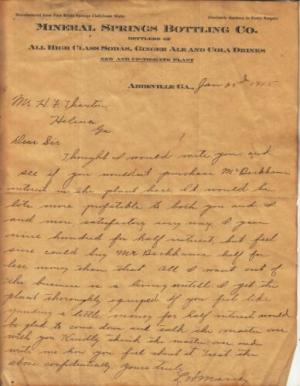 Manufactured from Pure Mineral Springs Water
MINERAL SPRINGS BOTTLING CO.
BOTTLERS OF
ALL HIGH CLASS SODAS, GINGER ALE AND COLA DRINKS
NEW AND UP-TO-DATE PLANT
ABBEVILLE GA., Jan
Mr H. F. Thaxton
Helena
Ga
Dear Sir
Thought I would write you and
see if you wouldn't purchase Mr
interest in the plant here I'd would be
more profitable to both you and I
and more satisfactory every way I gave
nine hundred for half interest, but feel
sure could buy Mr half for
less money than that All I want out of
the business is a living until I get the
plant thoroughly equipped If you feel like
a little money for half interest would
be glad to come down and talk the matter over
with you Kindly think the matter over and
write me how you feel about it Treat the
above confidentially yours truly